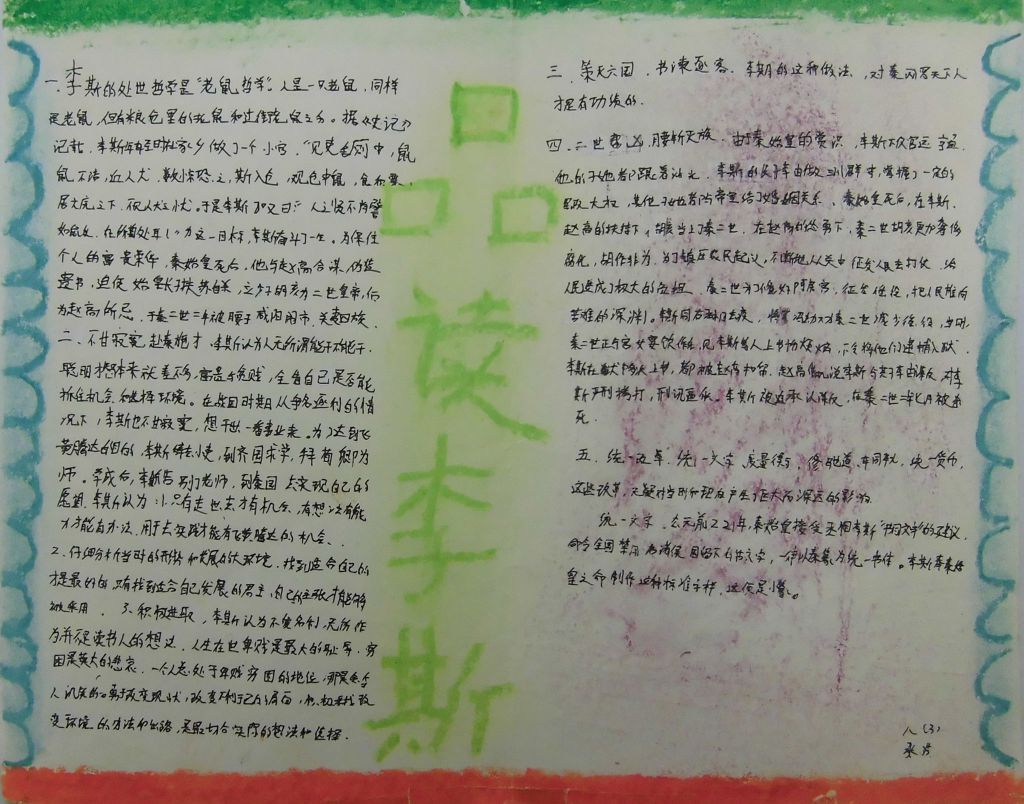 一、李斯的处世哲学是"老鼠哲学"。人是一只老鼠,同样
是老鼠,但有粮仓里的老鼠和过街老鼠之分。据《史记》
记载,李斯年轻时在家乡做了一个小官,"见吏舍厕中,鼠
鼠不洁,近人犬,数惊恐之,斯入仓,观仓中鼠,食积粟,
居大庑之下,不见人犬之忧。于是李斯叹曰:人之贤不肖譬
如鼠矣,在所自处耳!"为这一目标,李斯奋斗了一生。为保住
个人的富贵荣华,秦始皇死后,他与赵高合谋,伪造
遗书,迫使始皇长子扶苏自杀,立少子胡亥为二世皇帝,后
为赵高所忌,于秦二世二年被腰斩于咸阳闹市,夷三族。
二、不甘寂寞,赴秦施才。李斯认为人无所谓能干不能干,
聪明才智本来就差不多,富贵与贫贱,全看自己是否能
抓住机会和选择环境。在战国时期人人争名逐利的情
况下,李斯也不甘寂寞,想干出一番事业来。为了达到飞
黄腾达的目的,李斯辞去小吏,到齐国求学,拜荀卿为
师。学成后,李斯告别了老师,到秦国去实现自己的
愿望。李斯认为:1.只有走出去才有机会,有想法有能
力才能有办法,用于去实践才能有飞黄腾达的机会、
2.仔细分析当时的形势和发展的大环境,找到适合自己的
才是最好的,只有找到适合自己发展的君主,自己的主张才能够
被采用。3.积极进取,李斯认为不爱名利,无所作
为并不是读书人的想法。人生在世卑贱是最大的耻辱,穷
困是莫大的悲哀。一个人总处于卑贱穷困的地位,那是会令
人讥笑的。勇于改变现状,改变不利于己的局面,积极寻找改
变环境的方法和出路,是最切合实际的想法和选择.
品读李斯
三、策灭六国,书谏逐客。李斯的这种做法,对秦网罗天下人
才是有功绩的.
四、二世,腰斩灭族。由于秦始皇的赏识,李斯不仅官运亨通,
他的子也都跟着沾光。李斯的长子李由做三川郡守,掌握了一定的
军政大权,其他子也都与帝室结了婚姻关系。秦始皇死后,在李斯、
赵高的扶持下,胡亥当上了秦二世,在赵高的怂恿下,秦二世胡亥更加奢侈
腐化,胡作非为。为了镇压农民起义,不断地从关中征发人民去打仗,给
人民造成了极大的负担,秦二世为了修好阿房宫,征发徭役,把人民推向
苦难的深渊。
秦二世正与宫女宴饮作乐,见李斯等人上书恼怒,下令将他们逮捕入狱.
李斯在狱中多次上书,都被赵高扣留。赵高借机说李斯与其子李由谋反,对李
斯严刑拷打,刑讯逼供。李斯被迫承认谋反,在秦二世二年七月被杀
死。
五、统一车轨,统一文字,度量衡,修驰道,车同轨,统一货币,
这些改革,无疑对当时和现在产生了巨大而深远的影响。
统一文字。公元前221年,秦始皇接受丞相李斯"书同文字"的建议,
命令全国禁用各诸侯国留下的古文字,一律以秦篆为统一书体。李斯奉秦始
皇之命制作这种标准字样,这便是小篆。
八(3)